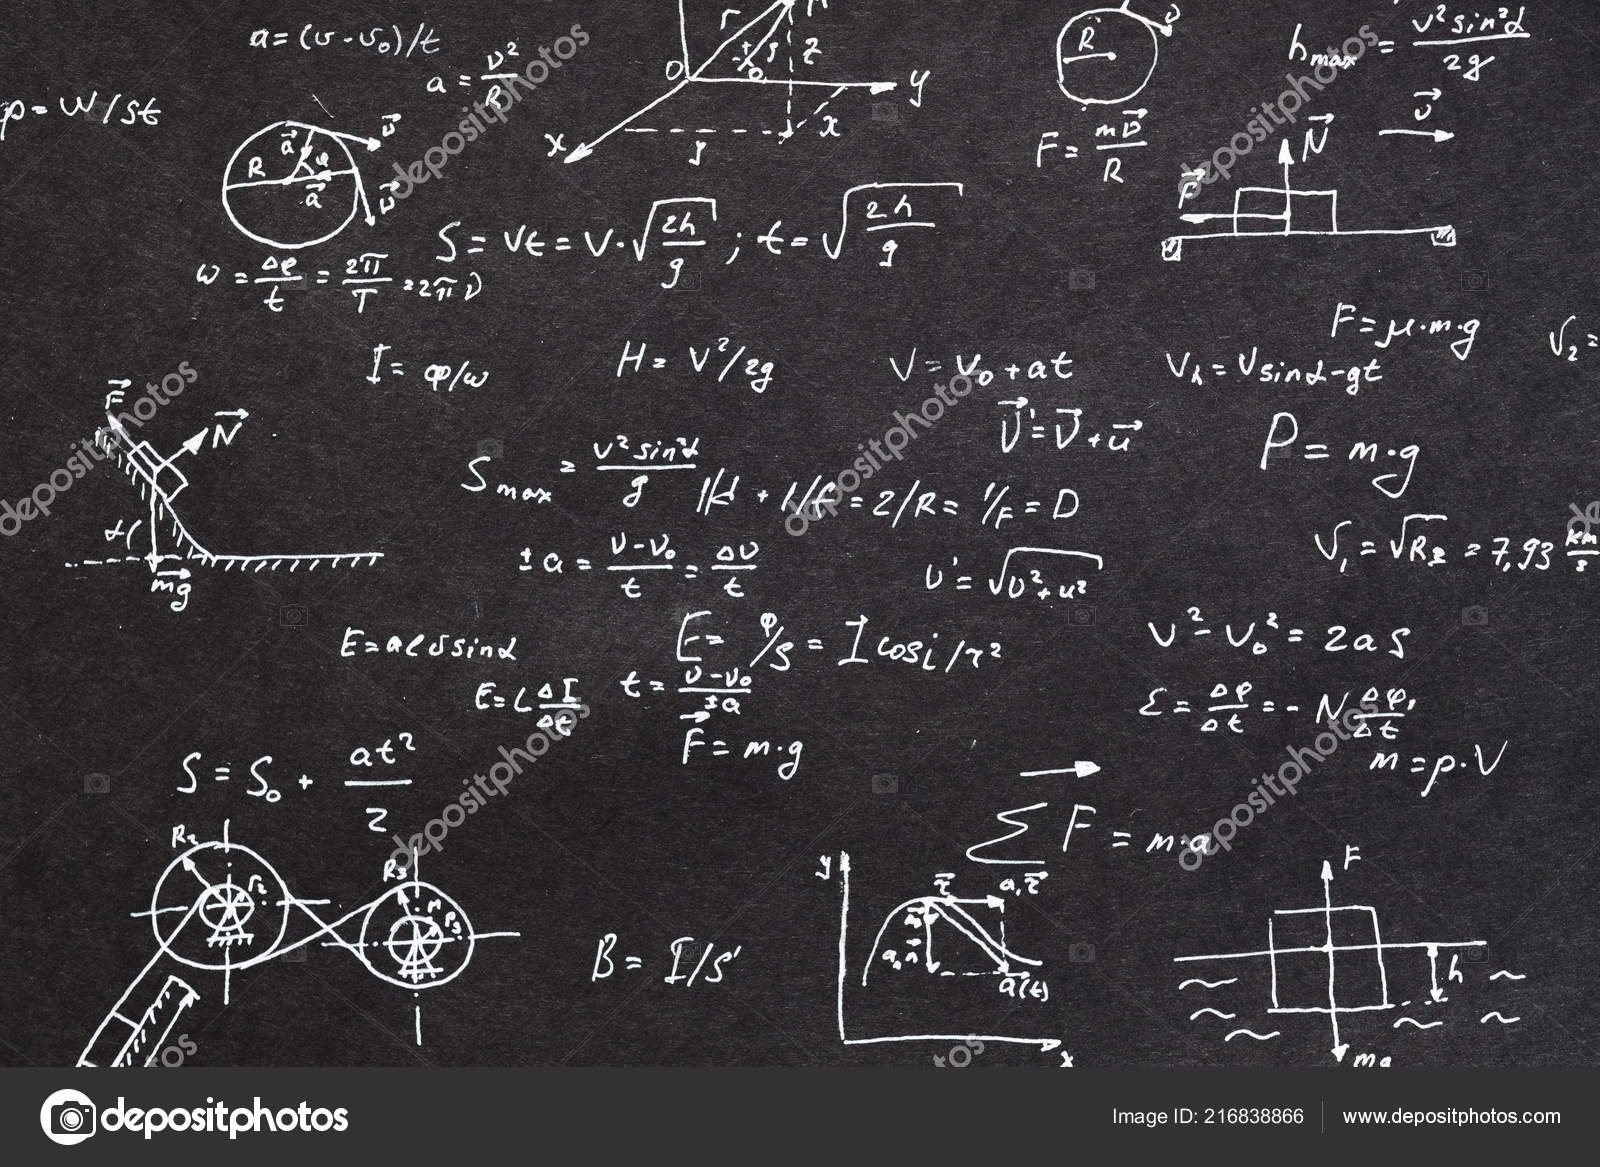 a = (v - v₀)/t
a = v²/R
h max = v² sin²α / 2g
R
r
z
O
y
x
φ = W/st
R
F = mv⃗/R
v⃗
N⃗
F⃗
S = Vt = V·√(2h/g) ; t = √(2h/g)
ω = Δφ/t = 2π/T = 2πν
F = μ·m·g
V₂ =
I = φ/ω
H = V²/2g
V = V₀ + at
Vₕ = V sinα - gt
F⃗
N⃗
v⃗' = v⃗ + u⃗
P = m·g
S max = v² sin²α / g
1/d + 1/f = 2/R = 1/F = D
α
mg⃗
± a = (v - v₀)/t = Δv/t
v' = √(v² + u²)
V₁ = √Rg = 7,93 km/s
E = Blv sinα
E = φ/s = I cos i / r²
V² - V₀² = 2aS
E = L ΔI/Δt
t = (v - v₀)/±a
ε = Δφ/Δt = -N Δφ₁/Δt
F⃗ = m·g
m = ρ·V
S = S₀ + at²/2
Σ F = m·a
R₂
r₂
R₃
B = I/S
y
a, τ⃗
a(t)
x
F
h
mg
depositphotos
Image ID: 216838866
www.depositphotos.com